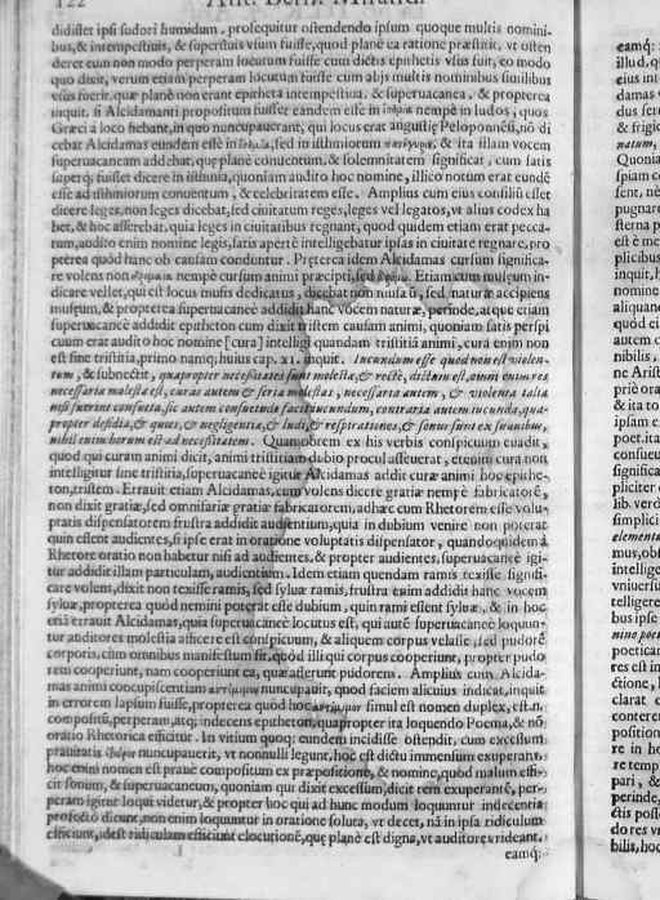 122 Ant. Bern. Mirandul
didisset ipsi sudori humidum, prosequitur ostendendo ipsum quoque multis nomini-
bus, & intempestiuis, & superfluis vsum fuisse, quod planè ea ratione præstitit, vt osten
deret eum non modo perperam locutum fuisse cum dictis epithetis vsus fuit, eo modo
quo dixit, verum etiam perperam locutum fuisse cum alijs multis nominibus similibus
vsus fuerit, quæ planè non erant epitheta intempestiua, & superuacanea, & propterea
inquit, si Alcidamanti propositum fuisset eandem esse in nempè in ludos, quos
Græci a loco hebant, in quo nuncupauerant, qui locus erat angustię Peloponnesi, nō di
cebat Alcidamas eundem esse in sed in isthmiorum & ita illam vocem
superuacaneam addebat, quę planè conuentum, & solemnitatem significat, cum satis
superq; fuisset dicere in isthmia, quoniam audito hoc nomine, illico notum erat eundē
esse ad isthmiorum conuentum, & celebritatem esse. Amplius cum eius consiliū esset
dicere leges, non leges dicebat, sed ciuitatum reges, leges vel legatos, vt alius codex ha
bet, & hoc asserebat, quia leges in ciuitatibus regnant, quod quidem etiam erat pecca-
tum, audito enim nomine legis, satis apertè intelligebatur ipsas in ciuitate regnare, pro
pterea quòd hanc ob causam conduntur. Pręterea idem Alcidamas cursum significa-
re volens non nempè cursum animi præcipti, sed Etiam cum musęum in-
dicare vellet, qui est locus musis dedicatus, dicebat non musa ū, sed naturæ accipiens
musęum, & propterea superuacaneè addidit hanc vocem naturæ, perinde, atque etiam
superuacaneè addidit epitheton cum dixit tristem causam animi, quoniam satis perspi
cuum erat audito hoc nomine [cura] intelligi quandam tristitiā animi, cura enim non
est sine tristitia, primo namq; huius cap. XI. inquit. Iucundum esse quod non est violen-
tum, & subnectit, quapropter necessitates sunt molestæ, & rectè, dictum est, omni enim res
necessaria molesta est, curas autem & seria molestas, necessaria autem, & violenta talia
nisi fuerint consueta, sic autem consuetudo facit iucundum, contraria autem iucunda, qua-
propter desidia, & quies, & negligentiæ, & ludi, & respirationes, & somus sunt ex suauibus,
nihil enim horum est ad necessitatem. Quamobrem ex his verbis conspicuum euadit,
quod qui curam animi dicit, animi tristitiam dubio procul asseuerat, etenim cura non
intelligitur sine tristitia, superuacaneè igitur Alcidamas addit curæ animi hoc epithe-
ton, tristem. Errauit etiam Alcidamas, cum volens dicere gratiæ nempè fabricatorē,
non dixit gratiæ, sed omnifariæ gratiæ fabricatorem, adhæc cum Rhetorem esse volu-
ptatis dispensatorem frustra addidit audientium, quia in dubium venire non poterat
quin essent audientes, si ipse erat in oratione voluptatis dispensator, quandoquidem à
Rhetore oratio non habetur nisi ad audientes, & propter audientes, superuacaneè igi-
tur addidit illam particulam, audientium. Idem etiam quendam ramis texisse signifi-
care volens, dixit non texisse ramis, sed syluæ ramis, frustra enim addidit hanc vocem
syluæ, propterea quòd nemini poterat esse dubium, quin rami essent syluæ, & in hoc
etiā errauit Alcidamas, quia superuacaneè locutus est, qui autē superuacaneè loquun-
tur auditores molestia afficere est conspicuum, & aliquem corpus velasse, sed pudorē
corporis, cum omnibus manifestum sit, quòd illi qui corpus cooperiunt, propter pudo
rem cooperiunt, nam cooperiunt ea, quæ afferunt pudorem. Amplius cum Alcida-
mas animi concupiscentiam αντίμιμον nuncupauit, quod faciem alicuius indicat, inquit
in errorem lapsum fuisse, propterea quòd hoc αντίμιμον simul est nomen duplex, est. n.
compositū, perperam, atq; indecens epitheton, quapropter ita loquendo Poema, & nō
oratio Rhetorica efficitur. In vitium quoq; eundem incidisse ostendit, cum excessum
prauitatis nuncupauerit, vt nonnulli legunt, hoc est dictu immensum exuperant,
hoc enim nomen est prauè compositum ex præpositione, & nomine, quòd malum effi-
cit sonum, & superuacaneum, quoniam qui dixit excessum, dicit rem exuperantē, per-
peram igitur loqui videtur, & propter hoc qui ad hunc modum loquuntur indecentia
profectò dicunt, non enim loquuntur in oratione soluta, vt decet, nā in ipsa ridiculum
efficiunt, idest ridiculam efficiunt elocutionē, quę planè est digna, vt auditores rideant.
eamq;